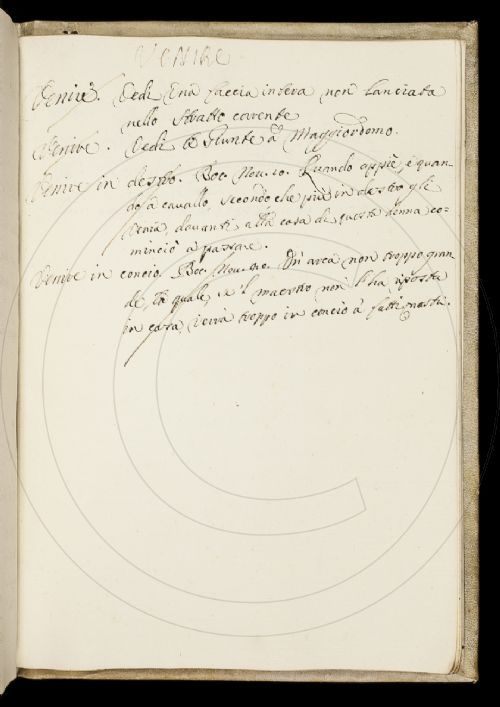 VENIRE
Venire. Vedi Una faccia intera non lanciata
nello Stratto corrente
Venire. Vedi le Giunte à Maggiordomo.
Venire in destro. Boc. Nov. 10. Quando appiè, e quan-
do à cavallo, secondo che più in destro gli
venia, davanti alla casa di questa donna co-
minciò a passare.
Venire in concio. Boc. Nov. Un' arca non troppo gran-
de, la quale, se 'l maestro non l' ha riposta
in casa, verrà troppo in concio a' fatti nostri.